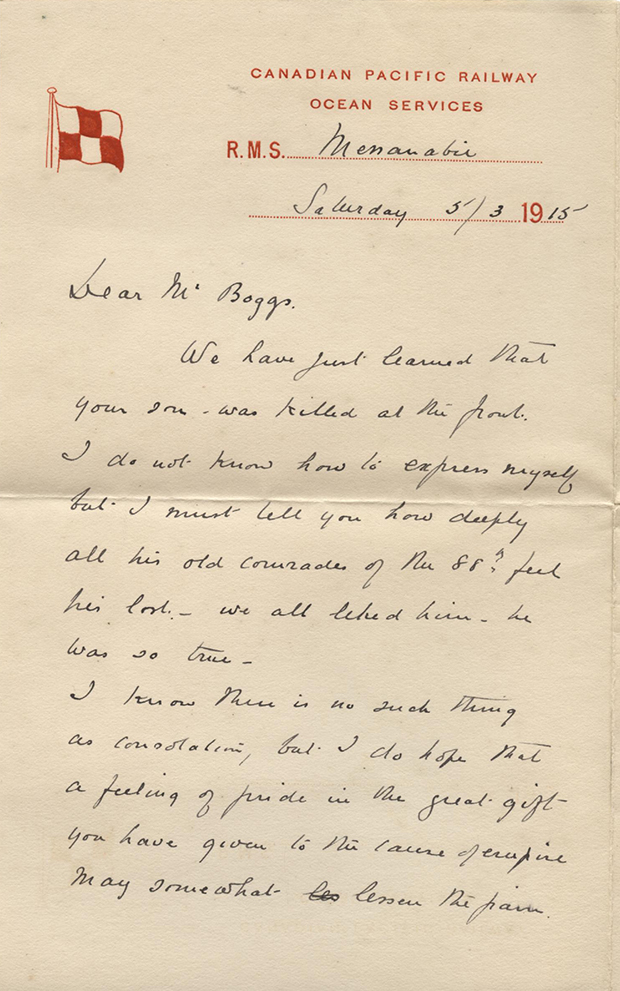 CANADIAN PACIFIC RAILWAY
OCEAN SERVICES
R.M.S. Messanabie
Saturday 5/3 1915
Dear Mr Boggs.
We have just learned that
your son - was killed at the front.
I do not know how to express myself
but I must tell you how deeply
all his old comrades of the 88th feel
his lost. - we all liked him - he
was so true -
I know there is no such thing
as consolation, but I do hope that
a feeling of pride in the great gift
you have given to the cause of empire
may somewhat les lessen the pain.